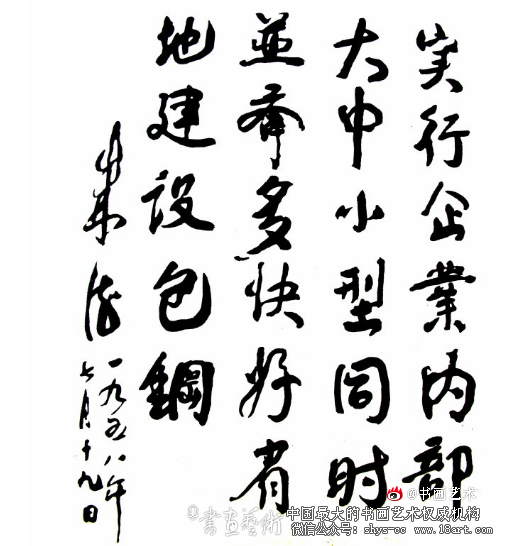 实行企業内部
大中小型同时
並举多快好省
地建设包鋼
一九五八年
七月十九日
@书画艺术
書畫藝術
中国最大的书画艺术权威机构
微信公众号：shys-cc www.18art.com